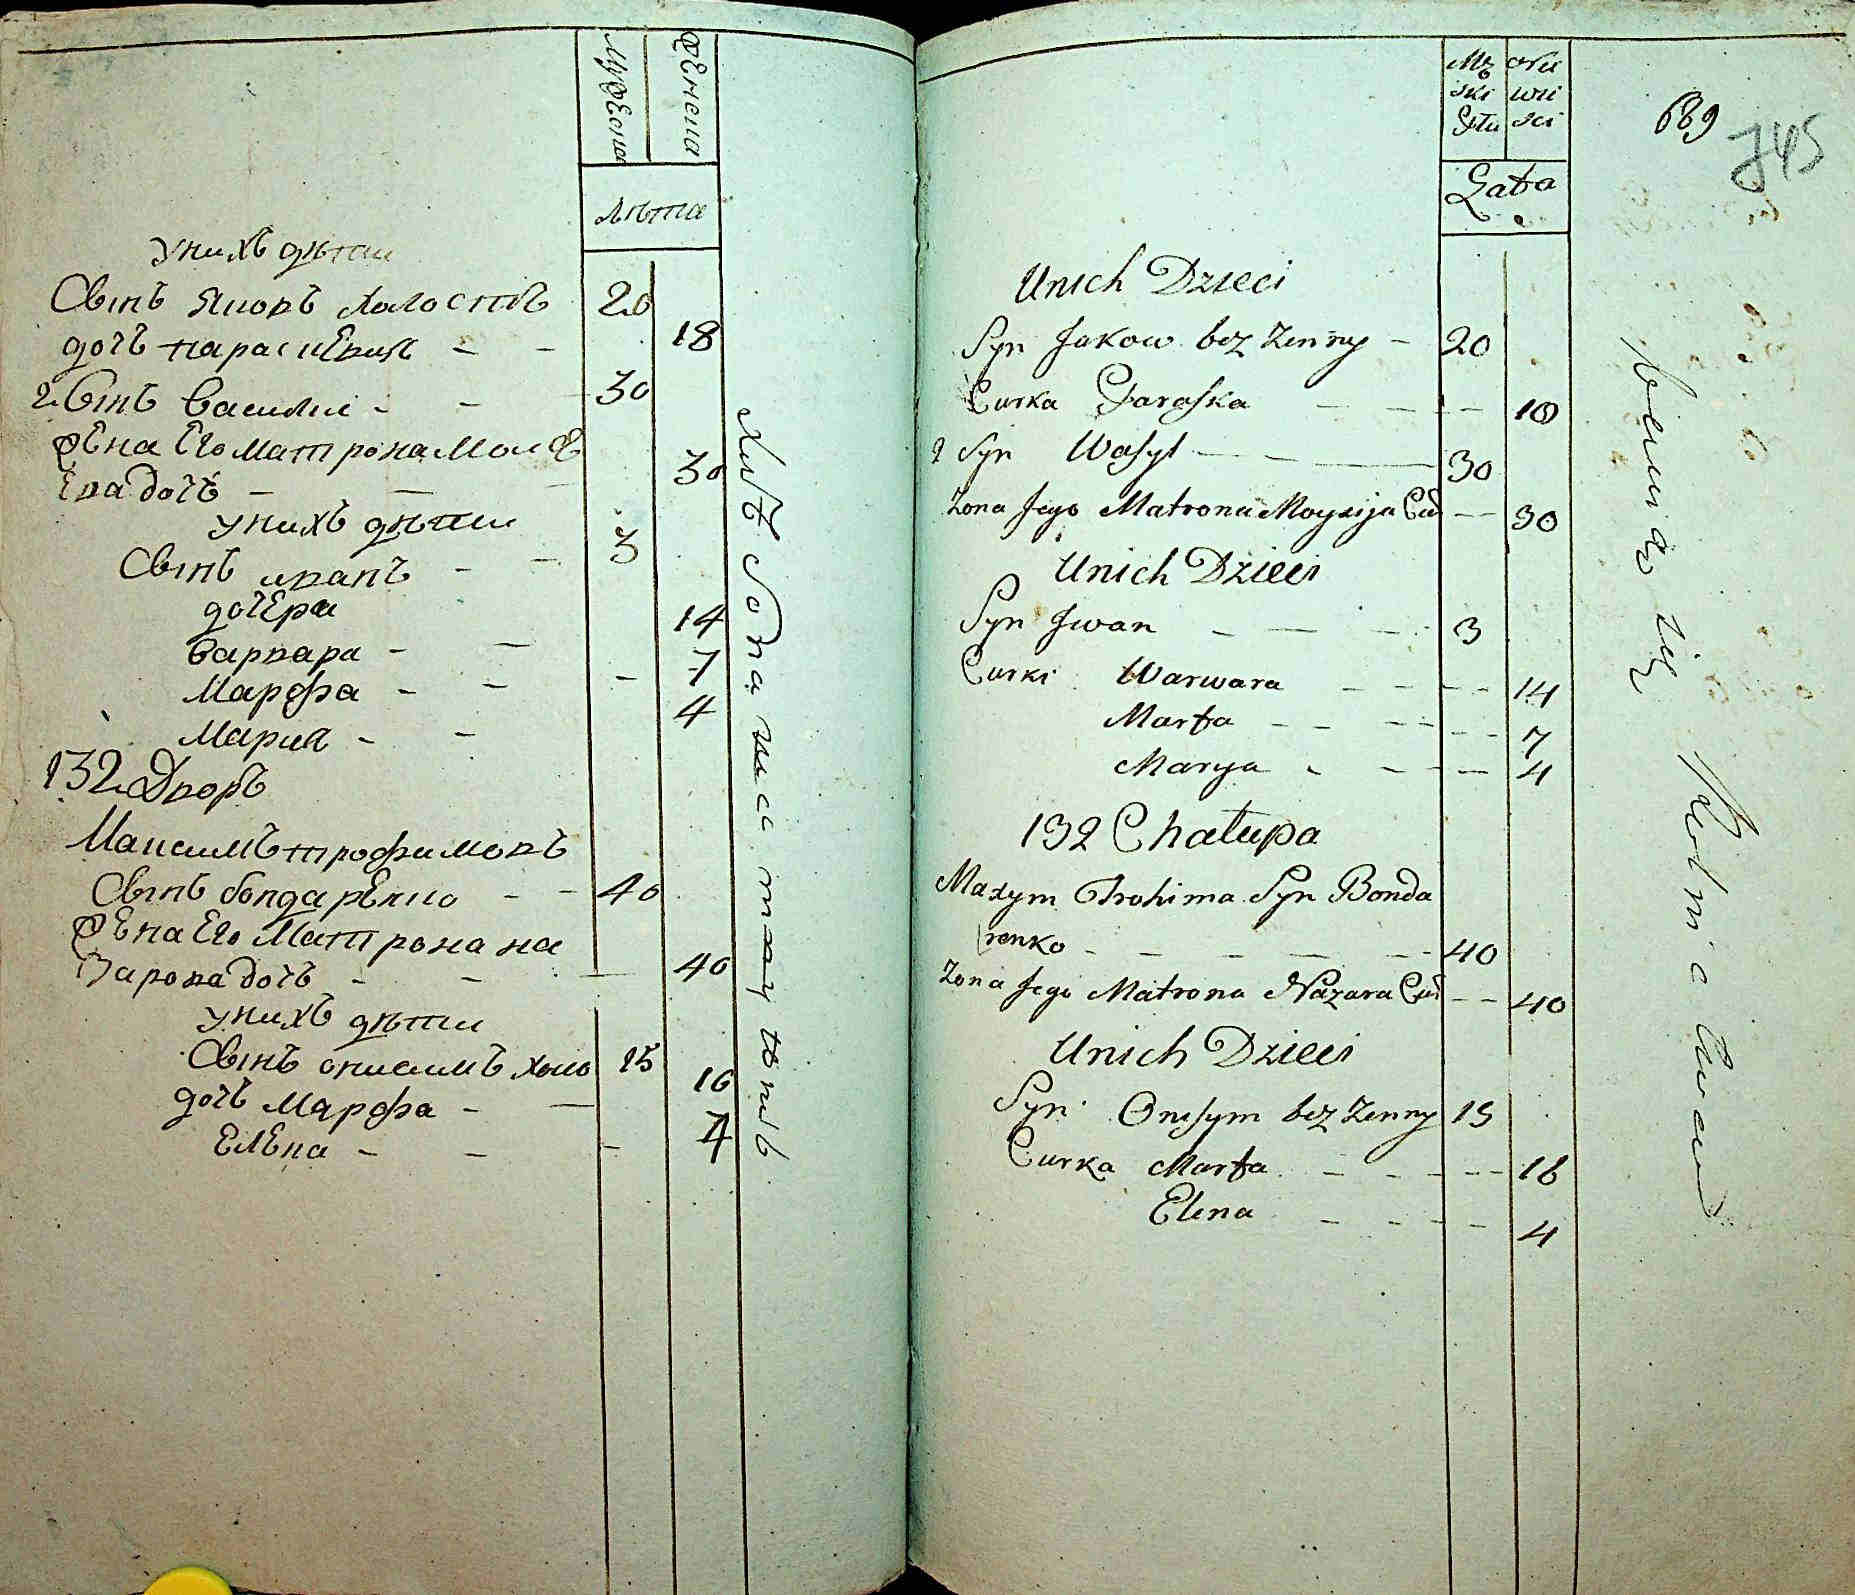 Мужеска
Женска
лѣта
У нихъ дѣти
Сынъ Яковъ холостъ 20
дочь параскѣвия - - 18
2 Сынъ Василий - - 30
жена Его Матрона Моисѣ
ева дочь - - 30
У нихъ дѣти
Сынъ иванъ - - 3
дочери
Варвара - - 14
Марфа - - - 7
Мария - - 4
132 Дворъ
Максимъ трофимовъ
Сынъ бондарЕнко - - 40
жена Его Матрона на
Зарова дочь - - 40
У нихъ дѣти
Сынъ онисимъ холо 15
дочь Марфа - - 16
Елена - - - 4
Mę ski Płu
Nie wie ści
Lata
689
745
Unich Dzieci
Syn Jakow bez Zenny - 20
Curka Paraska - - - - 18
2 Syn Wasyl - - - 30
Zona Jego Matrona Moysija Cur - - 30
Unich Dzieci
Syn Jwan - - - 3
Curki Warwara - - - - 14
Marta - - - - - 7
Marya - - - - 4
132 Chałupa
Maxym Trohima Syn Bonda
renko - - - - - 40
Zona Jego Matrona Nazara Cur - - 40
Unich Dzieci
Syn Onisym bez Zenny 15
Curka Marta - - - - 16
Elena - - - - 4